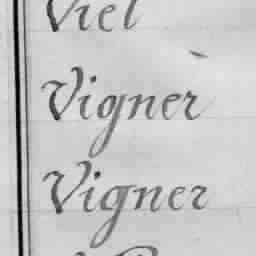 Viel
Vigner
Vigner